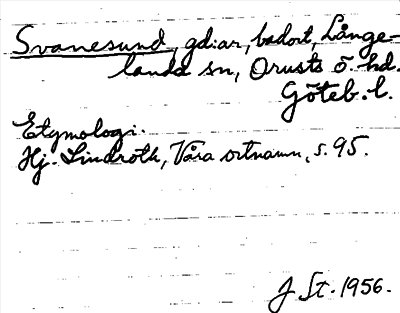 Svanesund, gd:ar, badort, Långe-
landa sn, Orusts ö. hd.
Göteb. l.
Etymologi.
Hj. Lindroth, Våra ortnamn, s. 95.
J St. 1956.